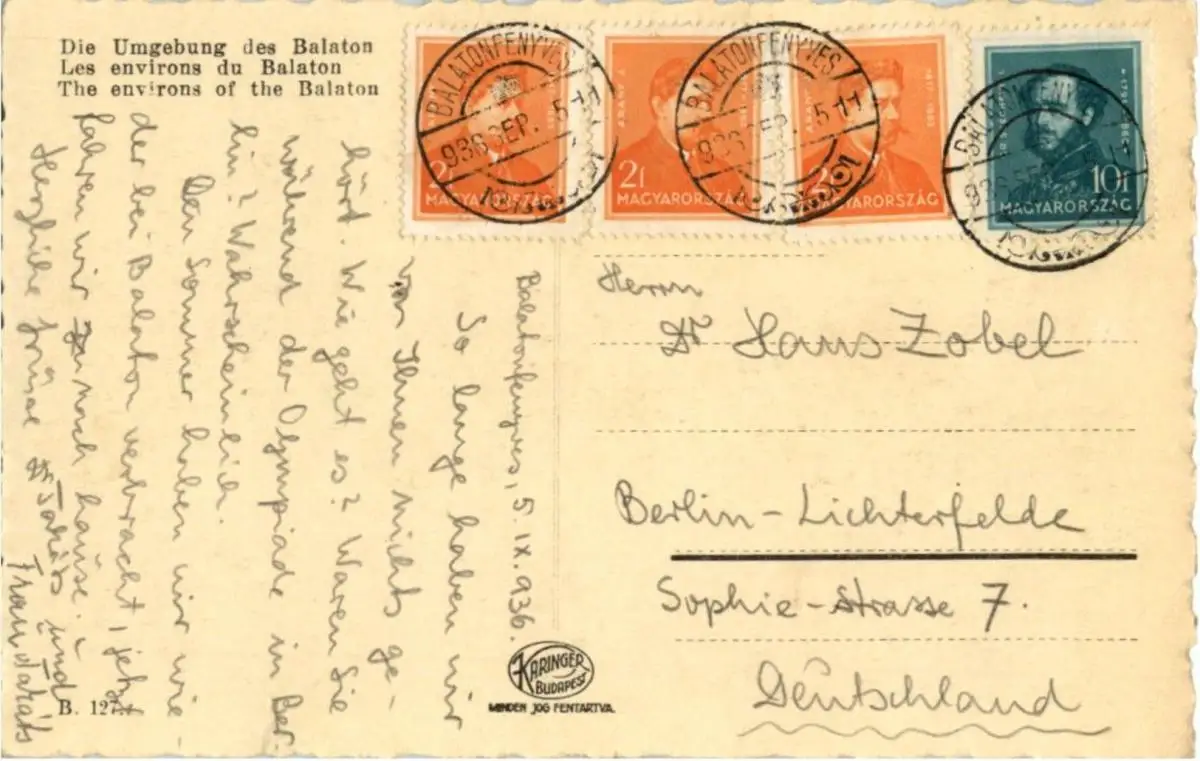 Die Umgebung des Balaton
Les environs du Balaton
The environs of the Balaton
BALATONFENYVES
936 SEP. 5-11
2f
MAGYARORSZÁG
ARANY J.
2f
MAGYARORSZÁG
BALATONFENYVES
936 SEP. 5-11
ARANY J.
1817-1882
2f
MAGYARORSZÁG
BALATONFENYVES
10f
MAGYARORSZÁG
Balatonfenyves, 5. IX. 936.
So lange haben wir
von Ihnen nichts ge-
hört. Wie geht es? Waren Sie
während der Olympiade in Ber-
lin? Wahrscheinlich.
Den Sommer haben wir wie
der bei Balaton verbracht, jetzt
fahren wir nach hause.
Herzliche Grüsse Dr Takáts und
Frau Takáts
Herrn
Dr Hans Zobel
Berlin-Lichterfelde
Sophie-Strasse 7.
Deutschland
KARINGER
BUDAPEST
MINDEN JOG FENTARTVA.
B. 127.